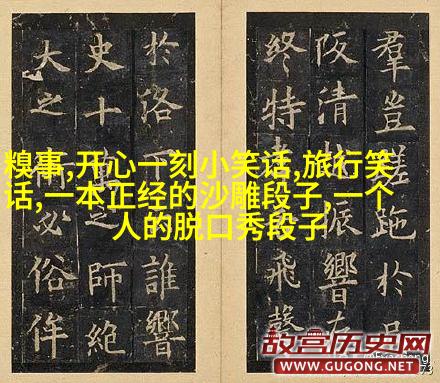 糗事,开心一刻小笑话,旅行笑
话,一本正经的沙雕段子,一个
人的脱口秀段子
羣豈跎於
阪清振響在
終特飛聲
於洛誰響
史十之師絕
大之必俗侔
故宫历史网
WWW.GUGONG.NET
73